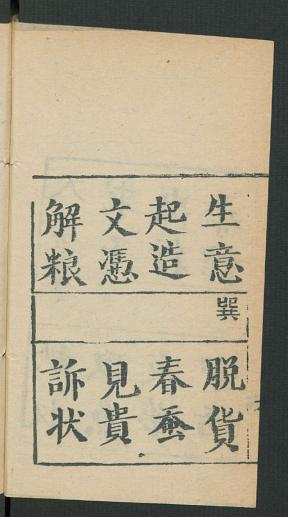 生意
起造
文憑
解粮
巽
脱貨
春蚕
見貴
訴状